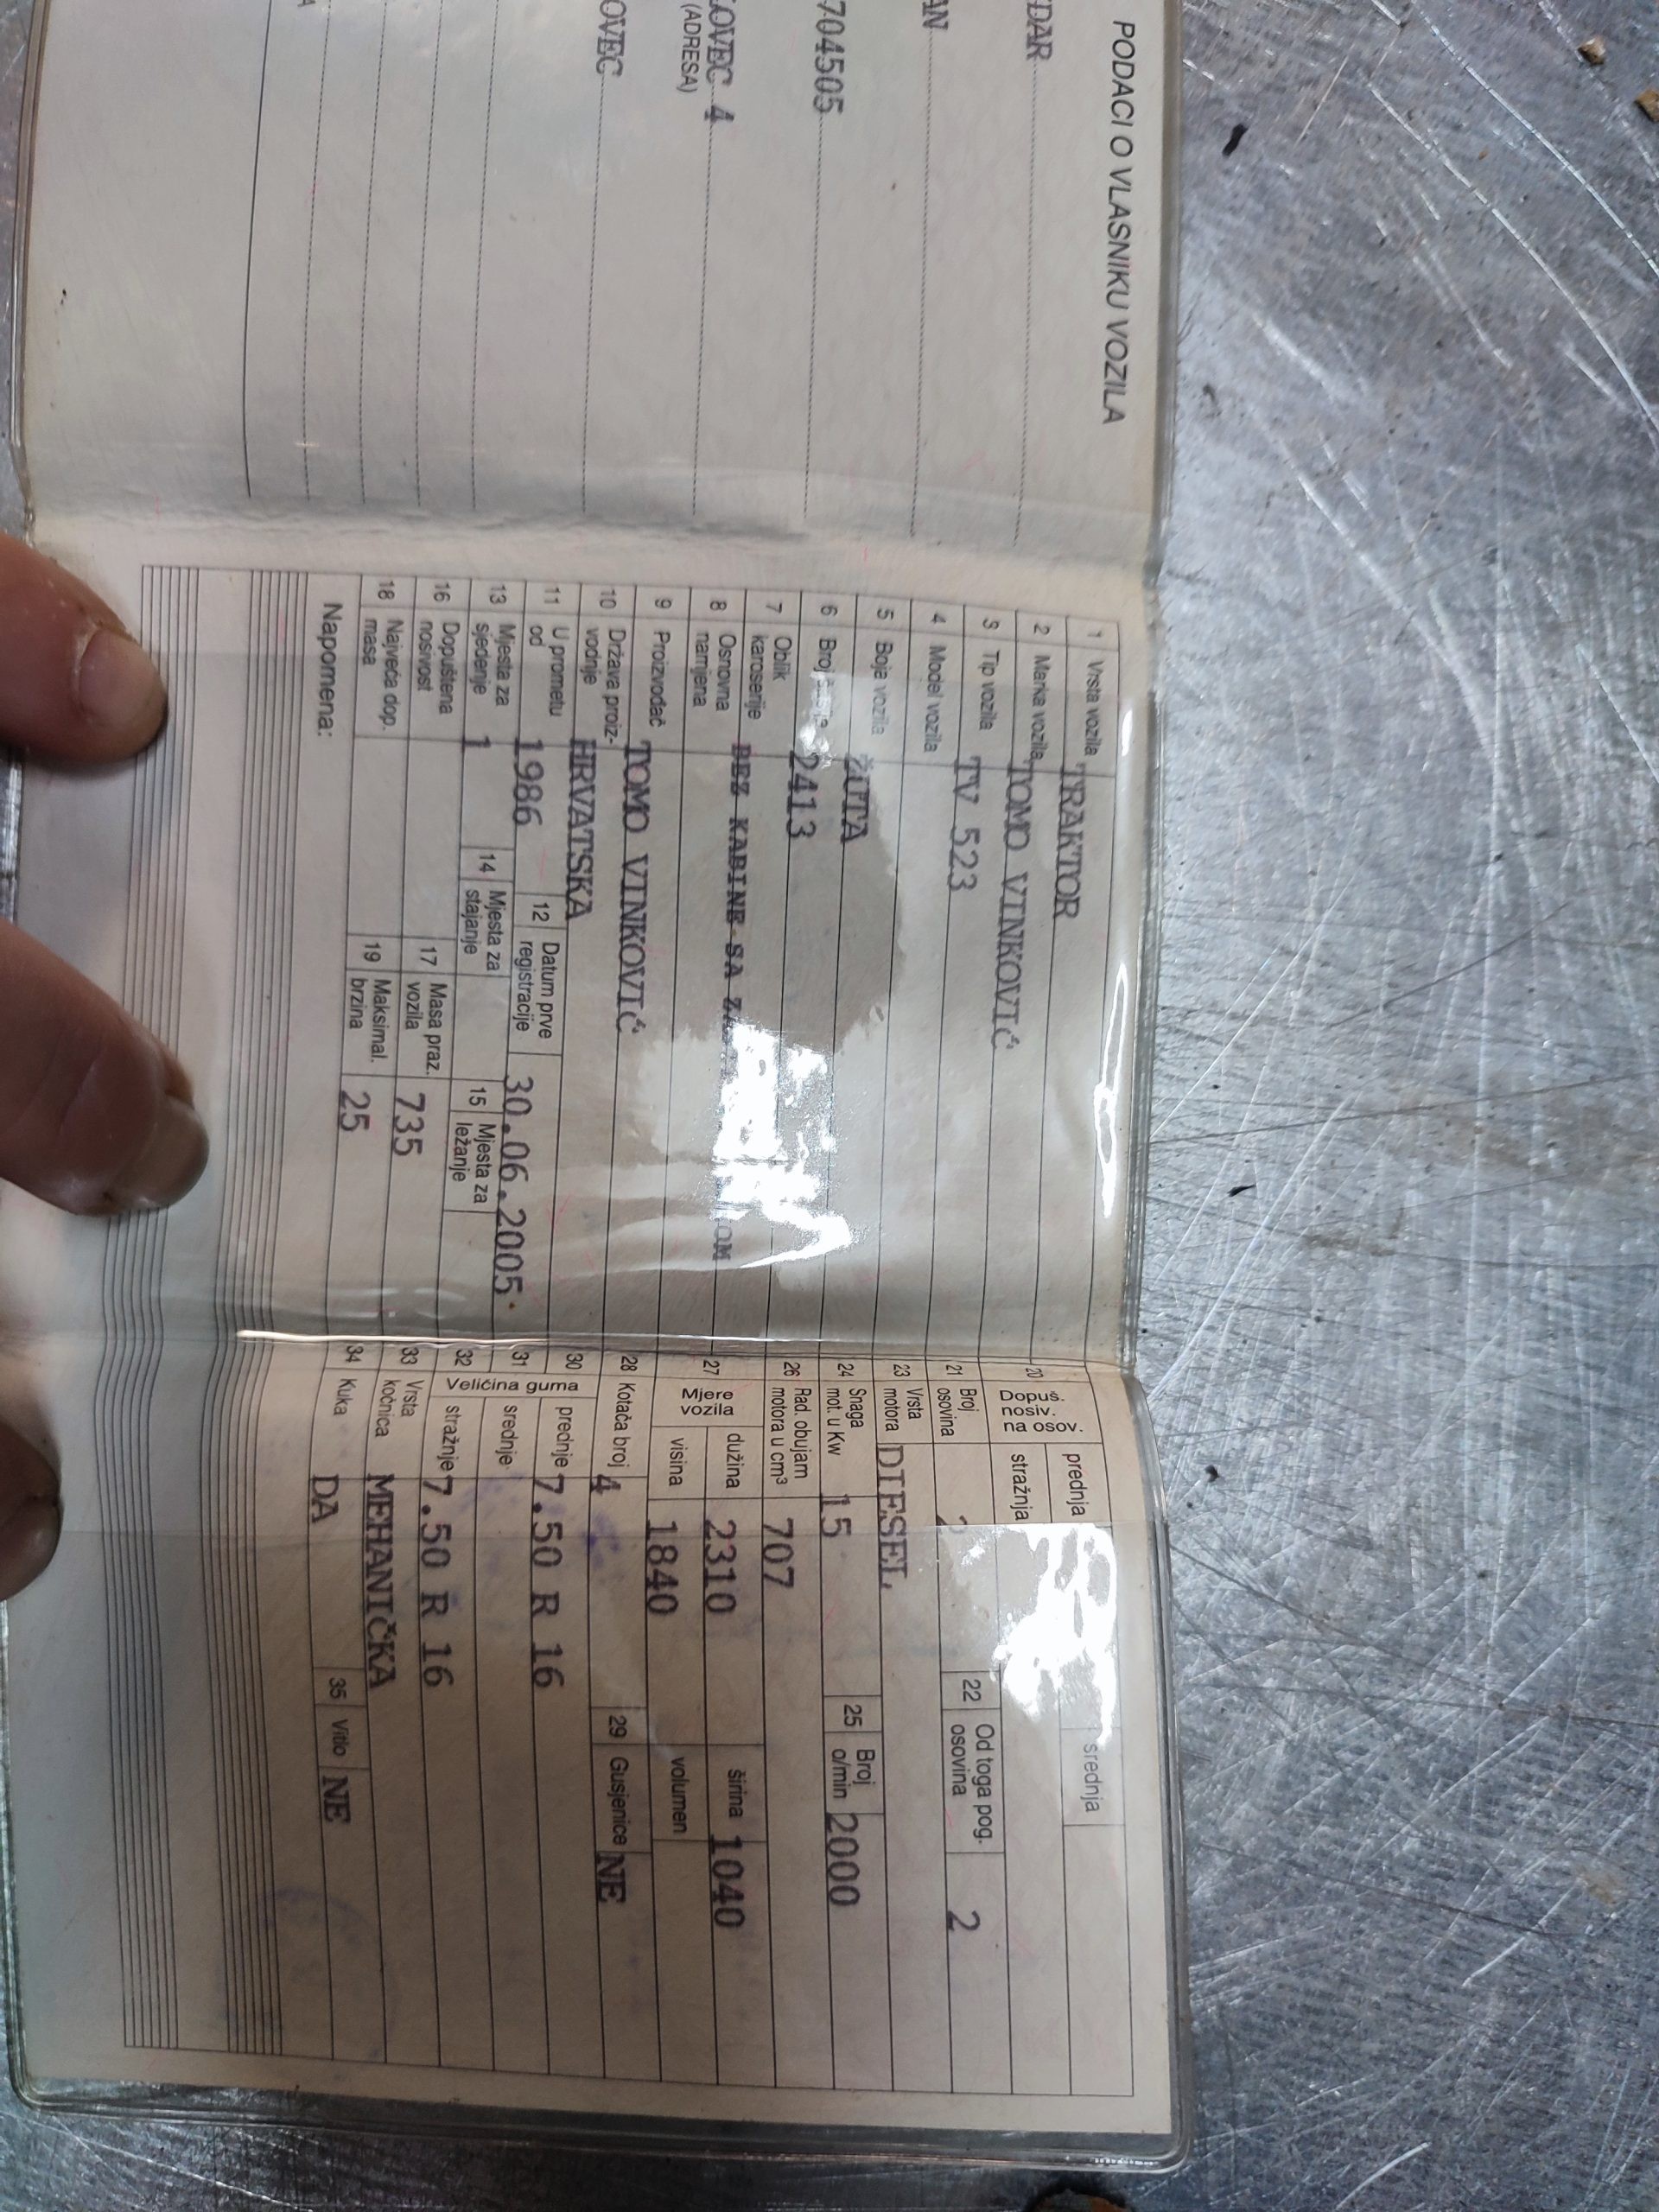 PODACI O VLASNIKU VOZILA
DAR
AN
704505
LOVEC 4
(ADRESA)
OVEC
1 Vrsta vozila TRAKTOR
2 Marka vozila TOMO VINKOVIĆ
3 Tip vozila TV 523
4 Model vozila
5 Boja vozila ŽUTA
6 Broj 2413
7 Oblik karoserije BEZ KABINE SA
8 Osnovna namjena
9 Proizvođač TOMO VINKOVIĆ
10 Država proiz-vodnje HRVATSKA
11 U prometu od 1986 12 Datum prve registracije 30.06.2005.
13 Mjesta za sjedenje 1 14 Mjesta za stajanje 15 Mjesta za ležanje
16 Dopuštena nosivost 17 Masa praz. vozila 735
18 Najveća dop. masa 19 Maksimal. brzina 25
Napomena:
20 Dopuš. nosiv. na osov. prednja srednja
stražnja
21 Broj osovina 22 Od toga pog. osovina 2
23 Vrsta motora DIESEL
24 Snaga mot. u Kw 15 25 Broj o/min 2000
26 Rad. obujam motora u cm³ 707
27 Mjere vozila dužina 2310 širina 1040
visina 1840 volumen
28 Kotača broj 4 29 Gusjenice NE
30 Veličina guma prednje 7.50 R 16
31 srednje
32 stražnje 7.50 R 16
33 Vrsta kočnica MEHANIČKA
34 Kuka DA 35 Vitlo NE